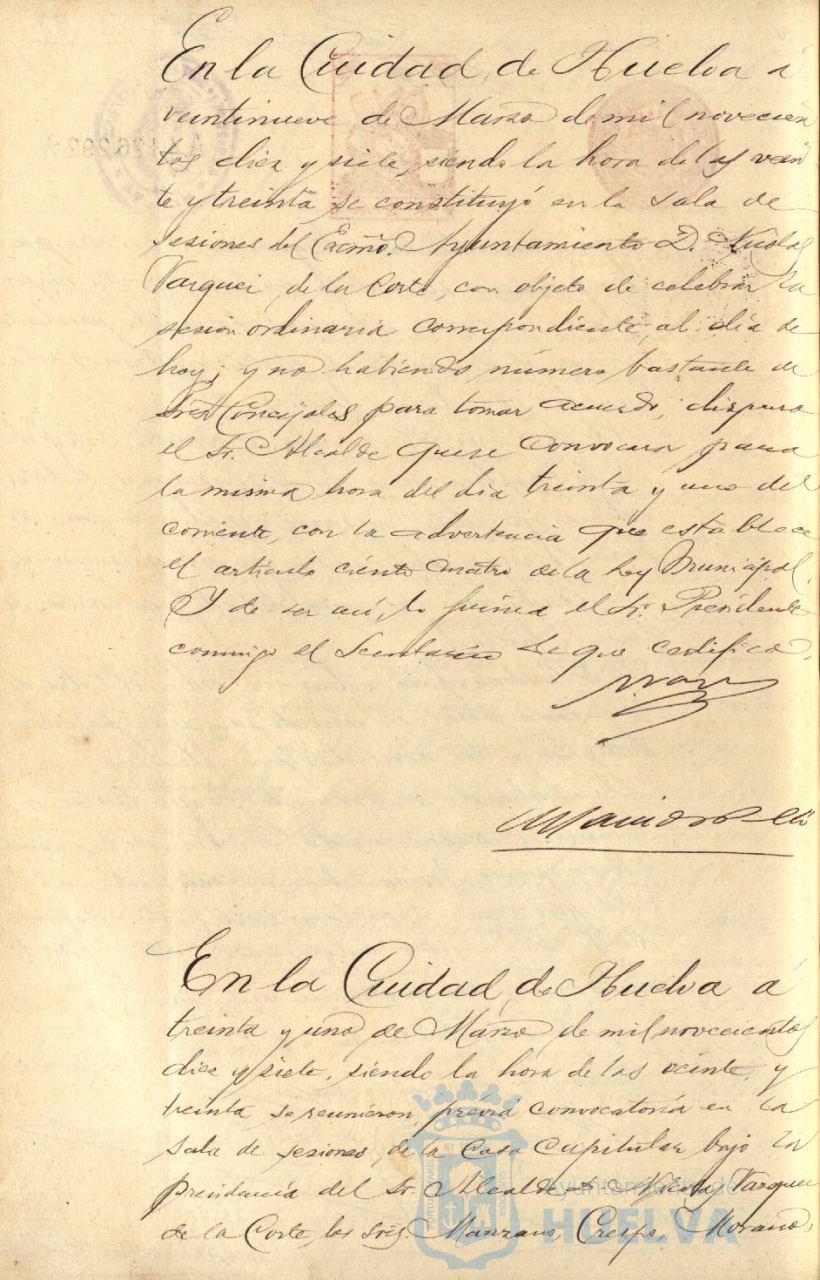 En la Cuidad, de Huelva á
veintinueve de Marzo de mil novecien
tos diez y siete, siendo la hora de las vein
te y treinta se constituyó en la sala de
sesiones del Excmo. Ayuntamiento D. Nicolas
Vazquez de la Corte, con objeto de celebrar la
sesion ordinaria correspondiente, al día de
hoy; y no habiendo número bastante de
Sres Concejales para tomar acuerdo, dispuso
el Sr. Alcalde que se convocara para
la misma hora del dia treinta y uno del
corriente, con la advertencia que establece
el artículo ciento cuatro de la Ley Municipal.
Y de ser así, lo firma el Sr. Presidente
conmigo el Secretario de que certifico.
En la Cuidad, de Huelva á
treinta y uno de Marzo de mil novecientos
diez y siete, siendo la hora de las veinte y
treinta se reunieron, prévia convocatoria en la
sala de sesiones, de la Casa Capitular bajo la
presidencia del Sr. Alcalde D. Nicolas Vazquez
de la Corte, los Sres. Manzano, Crespo, Morano,
Ayuntamiento de
HUELVA